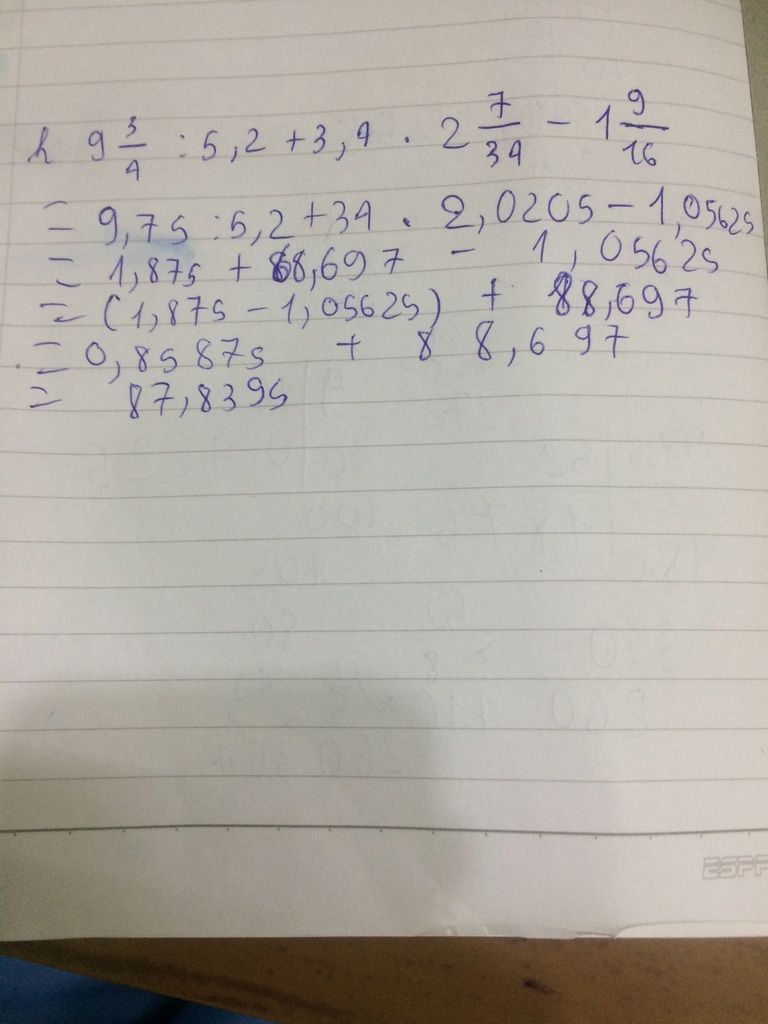 h 9 3/4 : 5,2 + 3,4 . 2 7/34 - 1 9/16
= 9,75 : 5,2 + 34 . 2,0205 - 1,05625
= 1,875 + 68,697 - 1,05625
= (1,875 - 1,05625) + 88,697
= 0,85875 + 88,697
= 87,8395